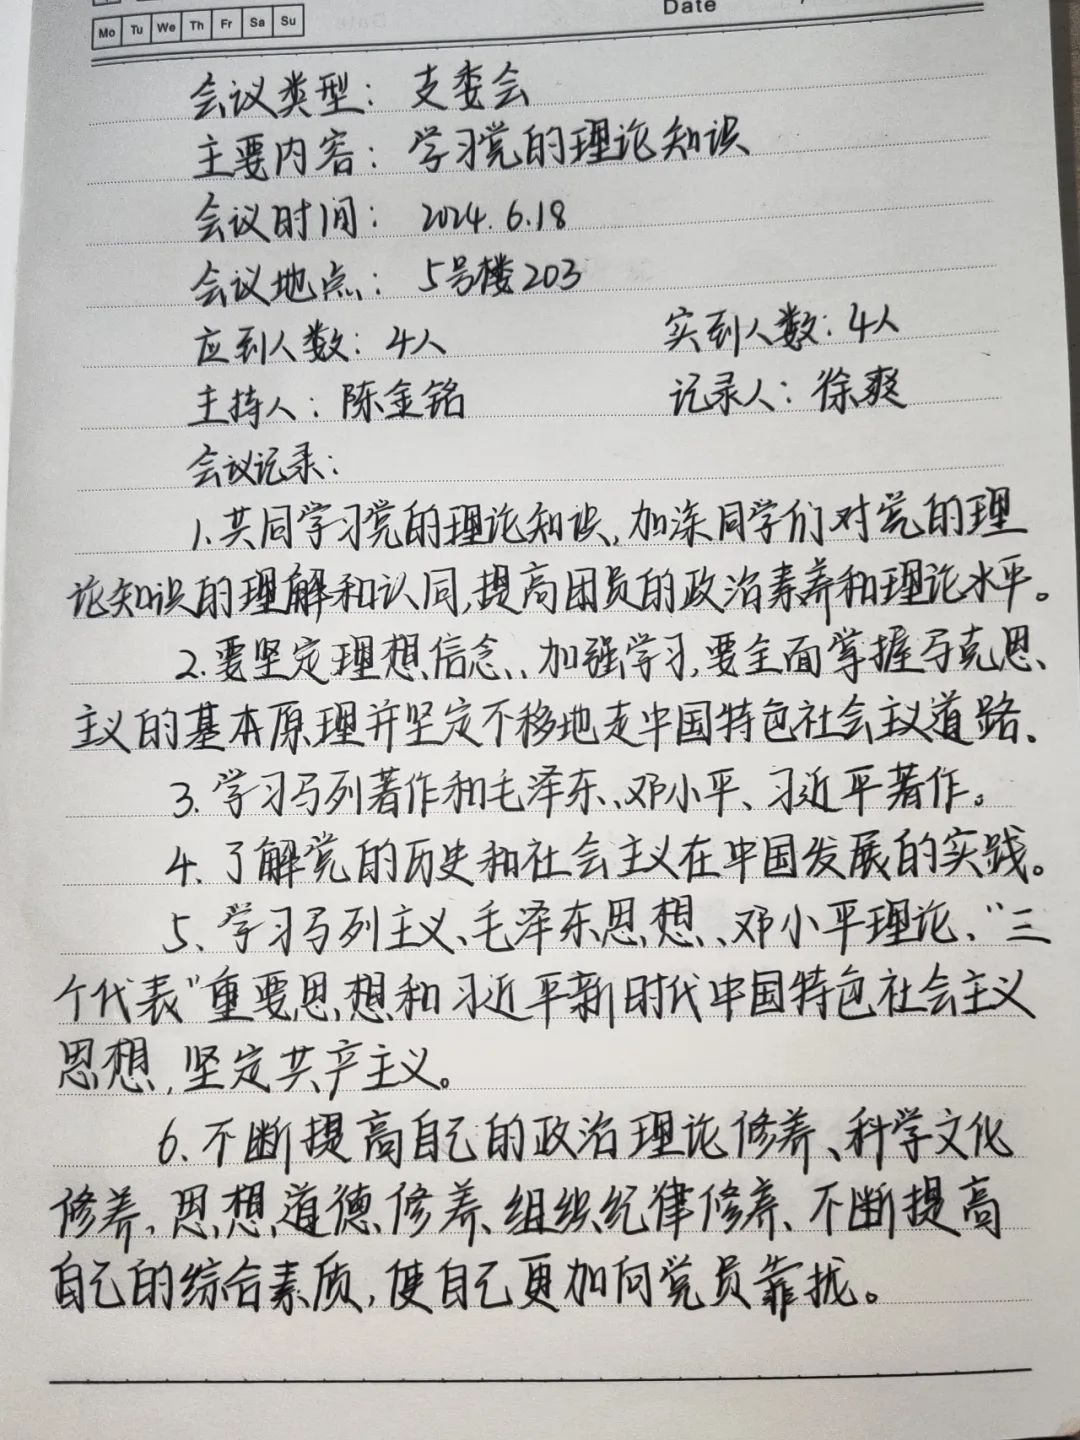 Mo Tu We Th Fr Sa Su
Date
会议类型：支委会
主要内容：学习党的理论知识
会议时间：2024.6.18
会议地点：5号楼203
应到人数：4人 实到人数：4人
主持人：陈金铭 记录人：徐爽
会议记录：
1.共同学习党的理论知识,加深同学们对党的理
论知识的理解和认同,提高团员的政治素养和理论水平。
2.要坚定理想信念、加强学习,要全面掌握马克思、
主义的基本原理并坚定不移地走中国特色社会主义道路、
3.学习马列著作和毛泽东、邓小平、习近平著作。
4.了解党的历史和社会主义在中国发展的实践。
5、学习马列主义、毛泽东思想、邓小平理论、“三
个代表”重要思想和习近平新时代中国特色社会主义
思想,坚定共产主义。
6.不断提高自己的政治理论修养、科学文化
修养,思想道德修养、组织纪律修养、不断提高
自己的综合素质,使自己更加向党员靠拢。